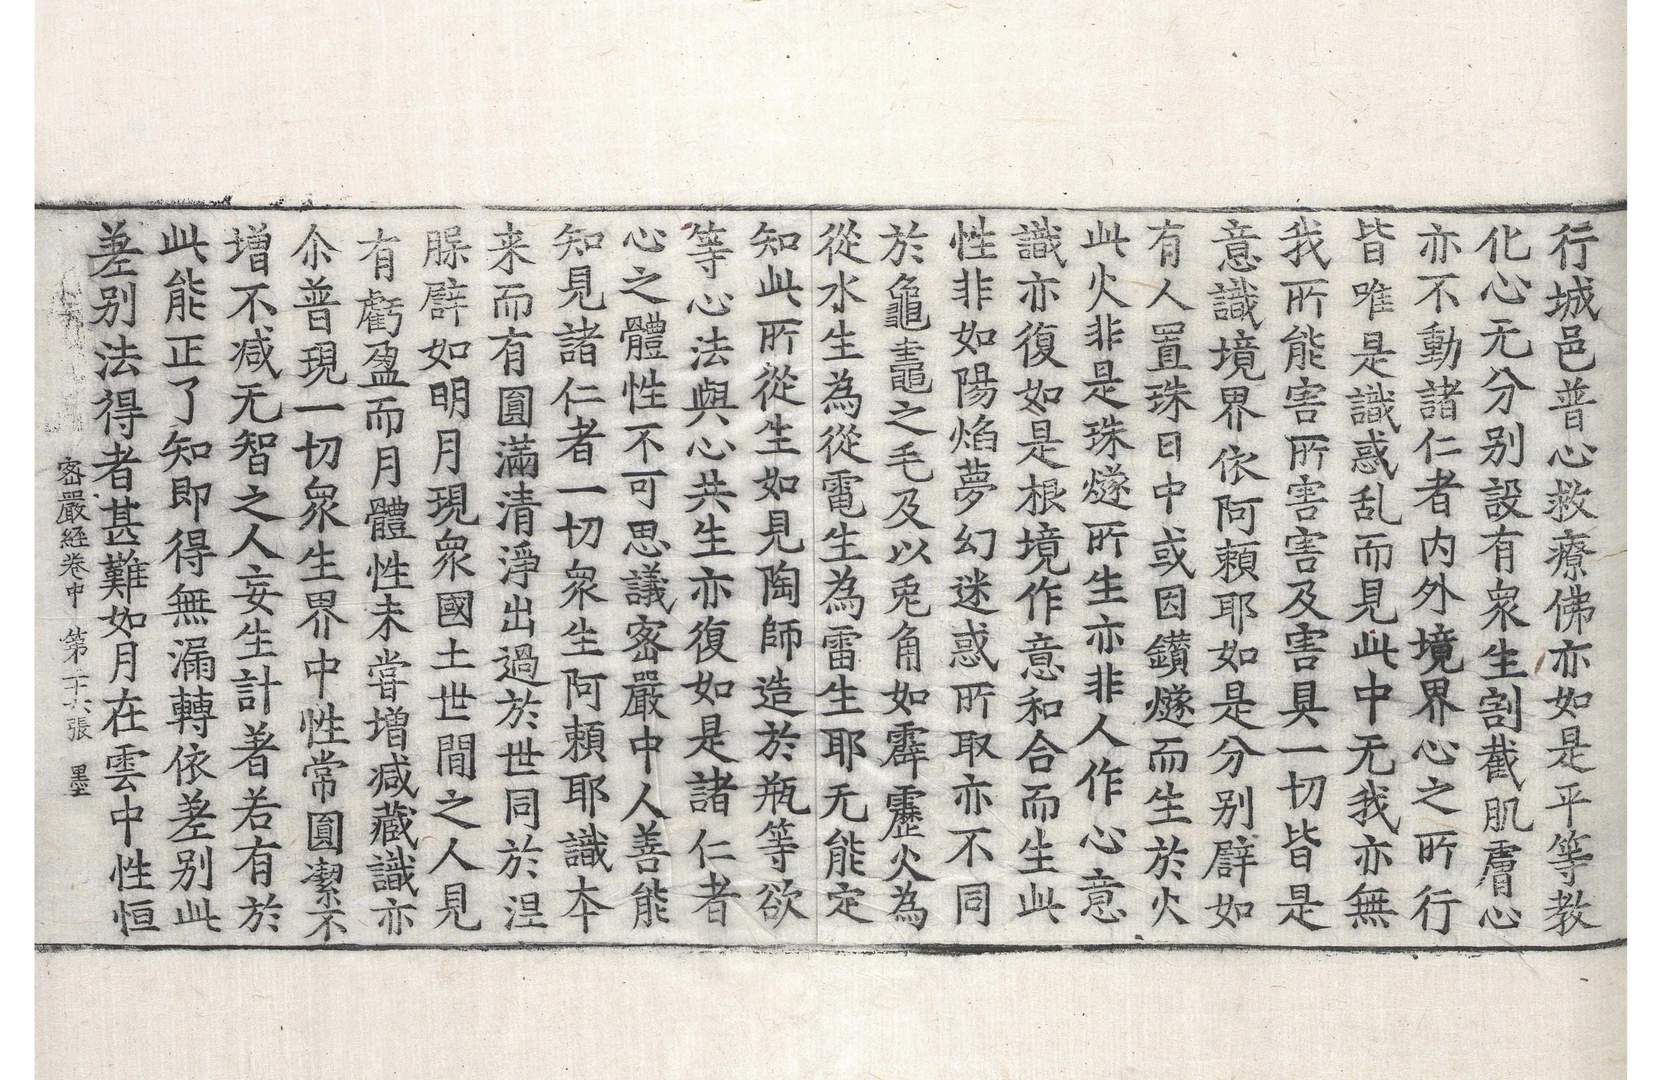 行城邑普心救療佛亦如是平等教
化心无分别設有衆生割截肌膚心
亦不動諸仁者内外境界心之所行
皆唯是識惑乱而見此中无我亦無
我所能害所害害及害具一切皆是
意識境界依阿頼耶如是分别譬如
有人置珠日中或因鑽燧而生於火
此火非是珠燧所生亦非人作心意
識亦復如是根境作意和合而生此
性非如陽焰夢幻迷惑所取亦不同
於龜鼈之毛及以兎角如霹靂火為
從水生為從電生為雷生耶无能定
知此所從生如見陶師造於瓶等欲
等心法與心共生亦復如是諸仁者
心之體性不可思議宻嚴中人善能
知見諸仁者一切衆生阿頼耶識本
来而有圓滿清淨出過於世同於涅
槃譬如明月現衆國土世間之人見
有虧盈而月體性未嘗增减藏識亦
尒普現一切衆生界中性常圓潔不
增不减无智之人妄生計著若有於
此能正了知即得無漏轉依差别此
差别法得者甚難如月在雲中性恒
宻嚴經卷中 第十六張 墨